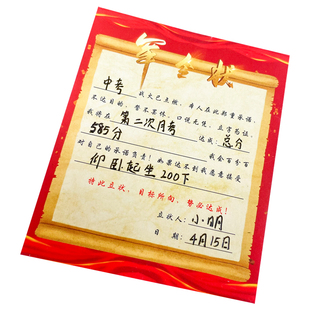 军令状
中考 战火已点燃，本人在此郑重承诺，
不达目的，誓不罢休，口说无凭，立字为证。
我将在 第二次月考 达成：总分
585分 我会百分百
对自己的承诺负责！如果达不到我愿意接受
仰卧起坐200下
特此立状，目标所向，誓必达成！
立状人：小明
日期：4月15日